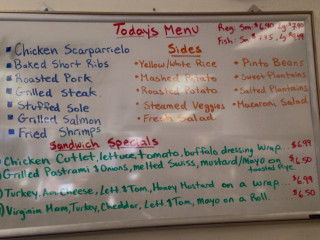 Todays Menu
Reg: Sm $6.90 Lg $7.90
Fish: Sm
Sides
Chicken Scarparrielo
Baked Short Ribs
Roasted Pork
Grilled Steak
Stuffed Sole
Grilled Salmon
Fried Shrimps
* Yellow/White Rice
* Mashed Potato
* Roasted Potato
* Steamed Veggies
* Fresh Salad
* Pinto Beans
* Sweet Plantains
* Salted Plantains
* Macaroni Salad
Sandwich Specials
Chicken Cutlet, lettuce, tomato, buffalo dressing Wrap... $6.99
Grilled Pastrami $ Onions, melted Swiss, mustard/mayo on toasted Rye. $6.50
Turkey, Am. Cheese, Lett $ Tom, Honey Mustard on a wrap... $6.99
Virginia Ham, Turkey, Cheddar, Lett $ Tom, mayo on a Roll. $6.50